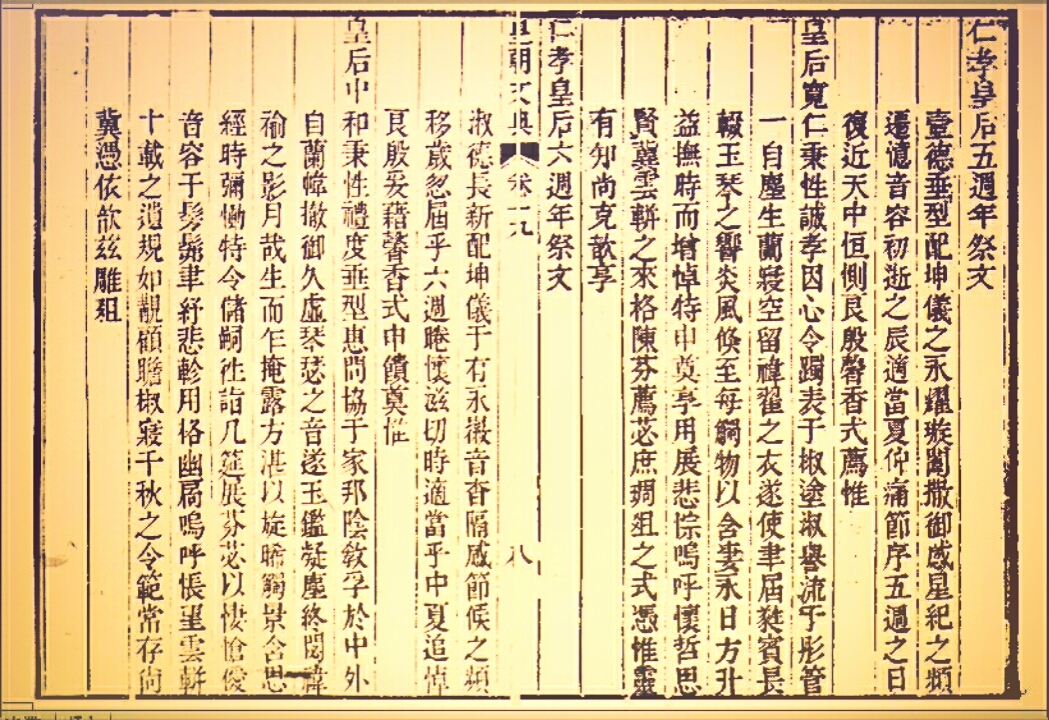 仁孝皇后五週年祭文
壼德垂型配坤儀之永耀璇闈撤御感星紀之頻
遷憶音容初逝之辰適當夏仲痛節序五週之日
復近天中恒惻艮殷馨香式薦惟
皇后寬仁秉性誠孝因心令躅表于椒塗淑譽流于彤管
一自塵生蘭寢空留褘翟之衣遂使聿屆蕤賓長
輟玉琴之響炎風倏至每觸物以含凄永日方升
益撫時而增悼特申奠享用展悲悰嗚呼懷哲思
賢冀雲軿之來格陳芬薦苾庶琱俎之式憑惟靈
有知尚克歆享
仁孝皇后六週年祭文
皇朝文典 卷十九 八
淑德長新配坤儀于有永徽音杳隔感節候之頻
移歲忽屆乎六週睠懷玆切時適當乎中夏追悼
艮殷爰藉馨香式申饋奠惟
皇后中和秉性禮度垂型惠問協于家邦陰敎孚於中外
自蘭幃撤御久虛琴瑟之音遂玉鑑凝塵終閟褘
褕之影月哉生而乍掩露方湛以旋晞觸景含思
經時彌慟特令儲嗣往詣几筵展芬苾以悽愴儼
音容于髣髴聿紓悲軫用格幽扃嗚呼悵望雲軿
十載之遺規如覩顧瞻椒寢千秋之令範常存尙
冀憑依歆玆雕俎